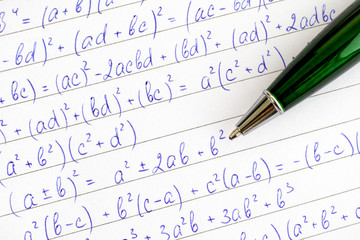 b⁴ = (a² + b²) = (ac - bd)²
- bd)² + (ad + bc)² = (ac)² + 2adbc
+ bc) = (ac)² - 2acbd + (bd)² + (ad)² + 2adbc
+ (ad)² + (bd)² + (bc)² = a²(c² + d²)
a² + b²)(c² + d²)
(a ± b)² = a² ± 2ab + b²
a²(b-c) + b²(c-a) + c²(a-b) = -(b-c)
a³ + 3a²b + 3ab² + b³